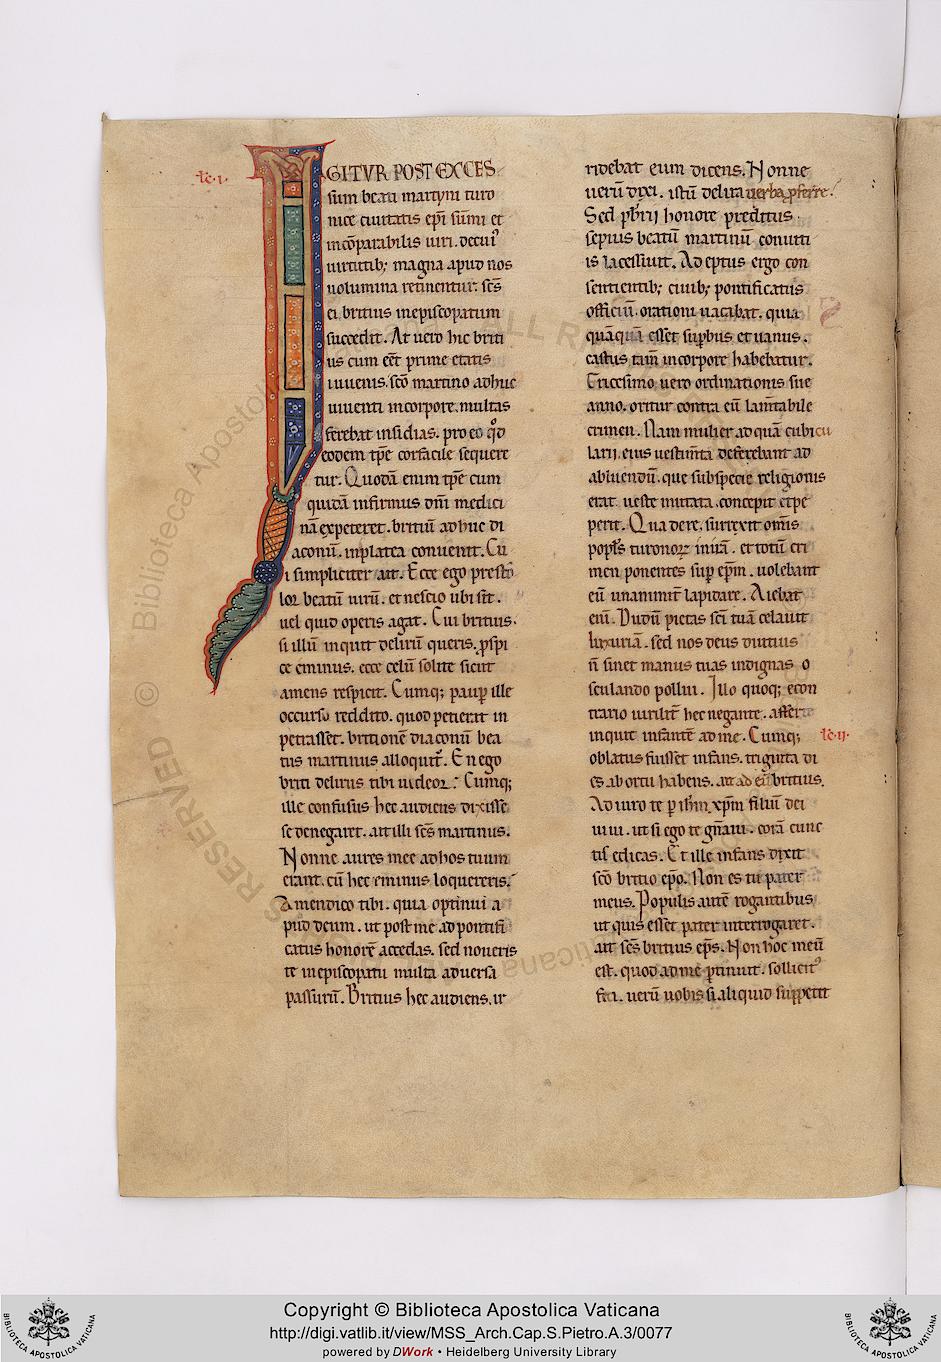 lc. i.
IGITVR POST EXCES
sum beati martyni turo
nice ciuitatis ep̄i sūmi et
incōparabilis uiri. de cui᷒
uirtutib; magna apud nos
uolumina retinentur. sc̄s
ei britius in episcopatum
succedit. At uero hic briti
us cum eēt prime etatis
iuuenis. sc̄o martino adhuc
uiuenti in corpore. multas
ferebat insidias. pro eo qd̄
eodem tp̄e cor facile sequere
tur. Quodā enim tp̄e cum
quidā infirmus dn̄i medici
nā expeteret. britiū adhuc di
aconū. in platea conuenit. Cu
i simpliciter ait. Ecce ego presto
lor beatum uirū. et nescio ubi sit.
uel quid operis agat. Cui britius.
si illū inquit delirū queris. ꝓspi
ce eminus. ecce celū solite sicut
amens respicit. Cumq; paup̄ ille
occursu reddito. quod petierat in
petrasset. britionē diaconū bea
tus martinus alloquit᷑. En ego
briti delirus tibi uideor? Cumq;
ille confusus hec audiens dixisse
se denegaret. ait illi sc̄s martinus.
Nonne aures mee ad hos tuum
erant. cū hec eminus loquereris.
Amen dico tibi. quia optinui a
pud deum. ut post me ad pontifi
catus honorē accedas. sed noueris
te in episcopatu multa aduersa
passurū. Britius hec audiens. ir
ridebat eum dicens. Nonne
uerū dixi. istū delira uerba ꝓferre.
Sed pb̄rii honore preditus
sepius beatū martinū conuiti
is lacessiuit. Adeptus ergo con
sentientib; ciuib; pontificatus
officiū. orationi uacabat. quia
quāquā esset suꝑbus et uanus.
castus tam̄ in corpore habebatur.
Tricesimo uero ordinationis sue
anno. oritur contra eū lam̄tabile
crimen. Nam mulier ad quā cubicu
larii eius uestim̄ta deferebant ad
abluendū. que sub specie religionis
erat ueste mutata. concepit et pe
perit. Qua de re. surrexit om̄is
popl̄s turonoꝝ in irā. et totū cri
men ponentes suꝑ ep̄m. uolebant
eū unanimit̄ lapidare. Aiebat
eni. Dudū pietas sc̄i tuā celauit
luxuriā. sed nos deus diutius
n̄ sinet manus tuas indignas o
sculando pollui. Illo quoq; econ
trario uirilit̄ hec negante. afferte
inquit infantē ad me. Cumq;
lc. ii.
oblatus fuisset infans. triginta di
es ab ortu habens. ait ad eū britius.
Adiuro te ꝑ ih̄m xp̄m filiū dei
uiui. ut si ego te gn̄aui. corā cunc
tis edicas. Et ille infans dixit
sc̄o britio ep̄o. Non es tu pater
meus. Populis autē rogantibus
ut quis esset pater interrogaret.
ait sc̄s britius ep̄s. Non hoc meū
est. quod ad me ꝑtinuit. sollicit᷒
feci. uerū uobis si aliquid suppetit
© Biblioteca Apostolica Vaticana ALL RIGHTS RESERVED
Copyright © Biblioteca Apostolica Vaticana
http://digi.vatlib.it/view/MSS_Arch.Cap.S.Pietro.A.3/0077
powered by DWork • Heidelberg University Library
BIBLIOTECA APOSTOLICA VATICANA
BIBLIOTECA APOSTOLICA VATICANA